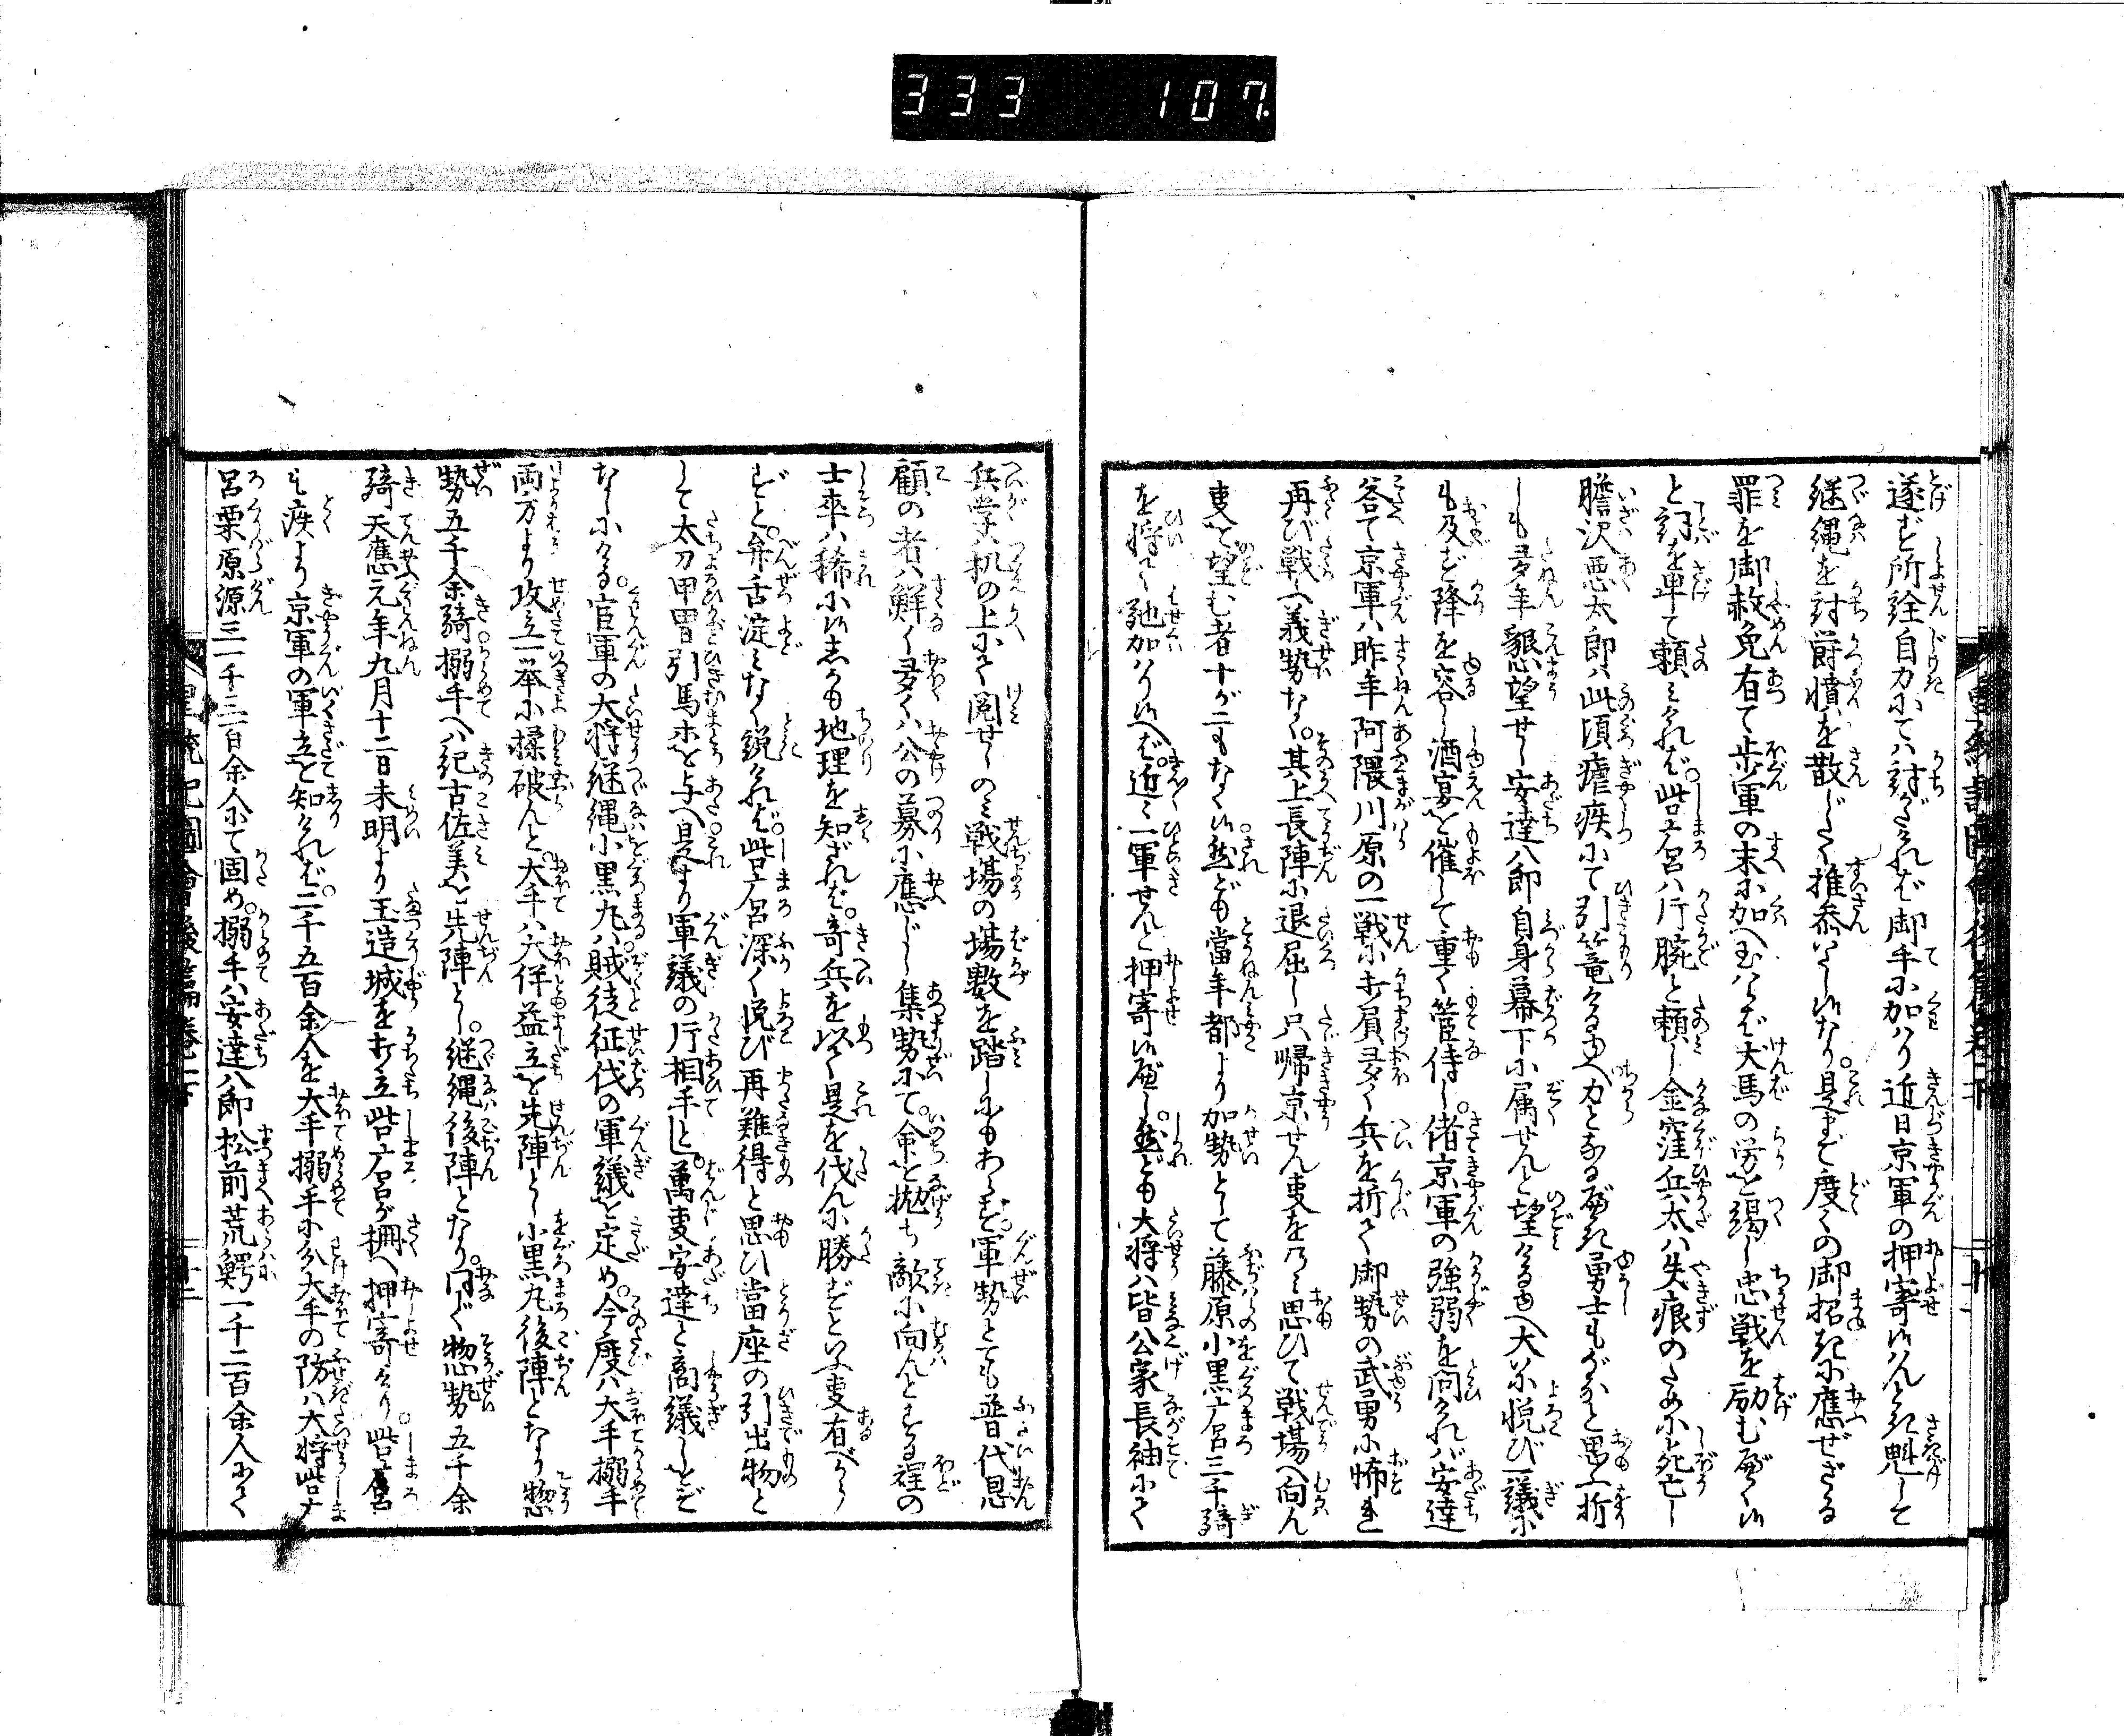 333 107
遂ず所詮自力にては討がたければ御手に加はり近日京軍の押寄候はんとき魁して
継縄を討欝憤を散じたく推参いたし候なり是まで度〻の御招きに應ぜざる
罪を御赦免有て歩軍の末に加へ玉はらば犬馬の労を竭し忠戦を励むべく候
と詞を卑て頼みければ。呰广呂ハ片腕と頼し金窪兵太ハ矢痕のために死亡し
膽沢悪太郎ハ此頃瘧疾にて引篭ける由へ力となるべき勇士もがなと思ふ折
しも多年懇望せし安達八郎自身幕下に属せんと望けるゆへ大に悦び一議に
も及ばず降を容し酒宴を催して重く管侍し。偖京軍の強弱を問ければ安達
答て京軍ハ昨年阿隈川原の一戦に打負多く兵を折て御勢の武勇に怖れ
再び戦ふ義勢なく。其上長陣に退屈し只帰京せん支をのみ思ひて戦場へ向ん
支を望む者十が二もなく候。然ども當年都より加勢として藤原小黒广呂三千騎
を将て馳加はり候へば。近〻一軍せんと押寄候べし。然ども大将ハ皆公家長袖にて
兵学ハ机の上にて閲せしのミ戦場の場数を踏しにもあらず。軍勢とても普代恩
顧の者ハ鮮く多くハ公の募に應じし集勢にて。命を抛ち敵に向んとする程の
士卒ハ稀に候しかも地理を知ざれば。奇兵を以て是を伐んに勝ずといふ支有べから
ずと。弁舌淀ミなく説ければ。呰广呂深く悦び再難得と思ひ當座の引出物と
して太刀甲冑引馬ホを与へ是より軍議の行相手とし。萬支安達と商議しとぞ
なしにける。官軍の大将継縄小黒丸ハ賊徒征伐の軍議を定め。今度ハ大手搦手
両方より攻立一挙に揉破んと。大手ハ大伴益立を先陣とし小黒丸後陣となり惣
勢五千余騎搦手へハ紀古佐美を先陣とし。継縄後陣となり。同じく惣勢五千余
騎天應元年九月十二日未明より玉造城を打立呰广呂が柵へ押寄けり。呰广呂
も疾より京軍の軍立を知ければ。二千五百余人を大手搦手に分大手の防ハ大将呰广
呂栗原源三一千三百余人にて固め。搦手ハ安達八郎松前荒鰐一千二百余人にて